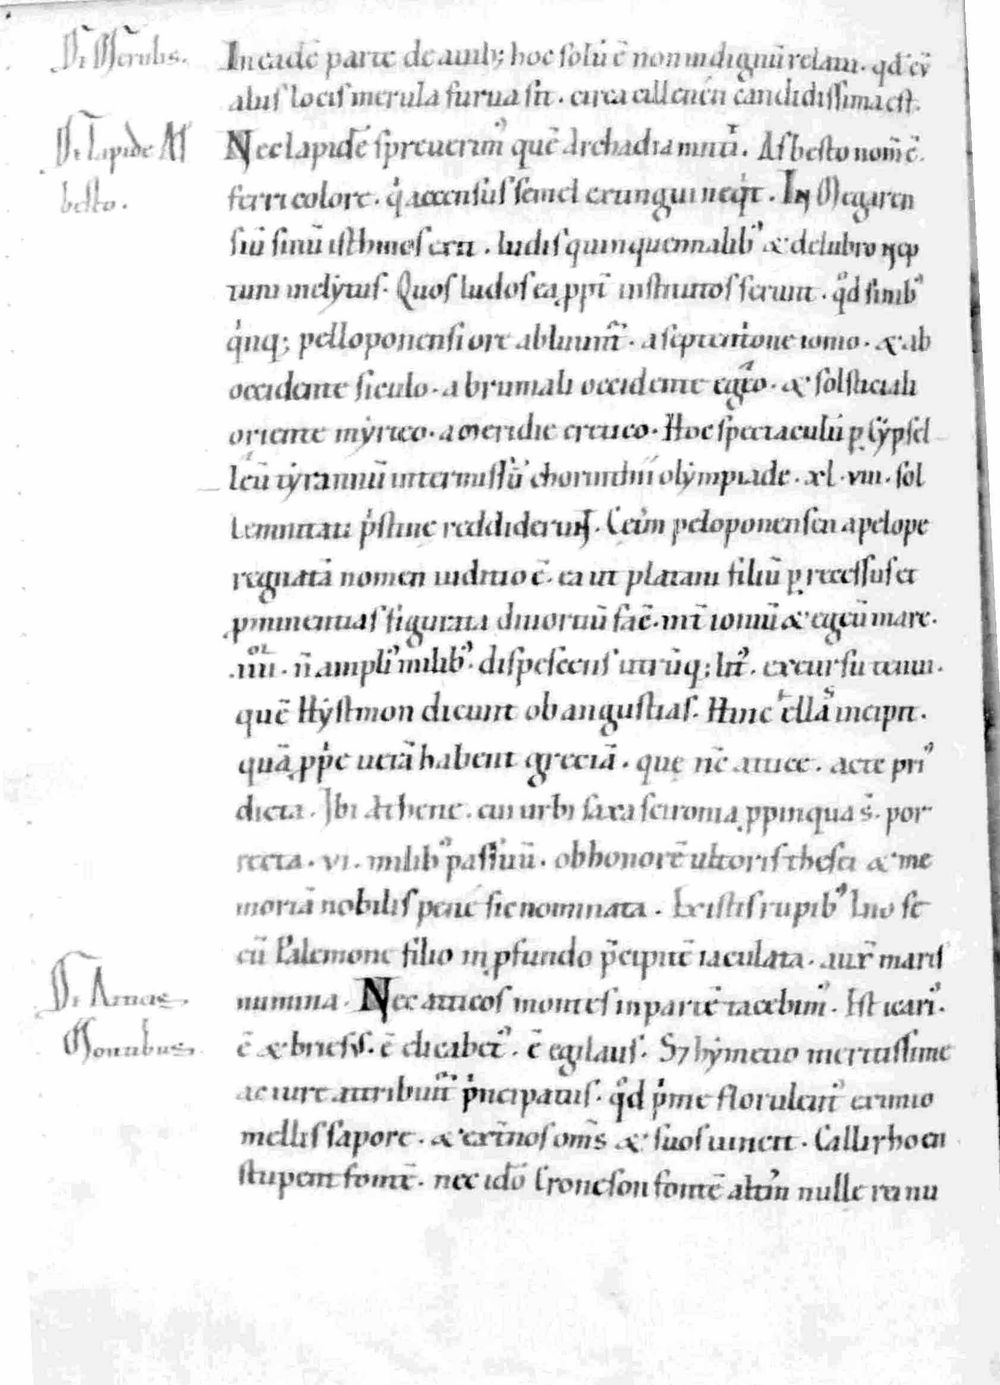 De Merulis.
In eadē parte de auib; hoc solū ē non indignū relatu. qd cū
aliis locis merula furua sit. circa cillenen candidissima est.
De lapide As
besto.
Nec lapidē spreuerim' quē Archadia mittit. Asbesto nom̄ ē.
ferri colore. q̇ accensus semel extingui neq̇t. In Megaren
siū sinū isthmos exit. ludis quinquennalib' & delubro nep
tuni inclytus. Quos ludos ea ꝓpt̄ institutos ferunt. qd sinib'
q̇nq; peloponensi ore abluunt̄. a septentrione ionio. & ab
occidente siculo. a brumali occidente egeo. & solsticiali
oriente myrteo. a meridie cretico. Hoc spectaculū ꝑ Cypsel
leū tyrannū intermissū chorinthii olympiade. xl. viiii. sol
lemnitati ṗstine reddiderunt. Ceterum peloponensen a pelope
regnatā nomen indicio ē. ea ut platani foliū ꝑ recessus et
ꝓminentias figurata diuortiū facē. int̄ ioniū & egeū mare.
.iiii. ñ ampli' milib'. dispescens utrūq; lit'. excursu tenui.
quē Hystmon dicunt ob angustias. Hinc ellas incipit.
quā ꝓṗe uerā habent greciā. que nc̄ attice. acte pri'
dicta. Ibi Athene. cui urbi saxa scironia ꝓpinqua s̄. por
recta. vi. milib' passuū. ob honorē ultoris thesei & me
moriā nobilis pene sic nominata. Ex istis rupib' Ino se
cū Palemone filio in ꝓfundo p̄cipitē iaculata. aux̄ maris
numina. De Atticis
Montibus.
Nec atticos montes in partē tacebim'. Est icari'.
ē & briessus. ē licabet'. ē egilaus. S; hymetto meritissime
ac iure attribuit̄ ṗncipatus. qd ṗme florulent' eximio
mellis sapore. & externos om̄s & suos uincit. Callirhoen
stupent fontē. nec ido̅ Croneson fontē alterum nulle rei nu